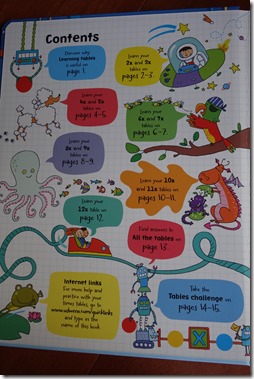 Contents
Discover why
Learning tables
is useful on
page 1.
Learn your
2x and 3x
tables on
pages 2-3.
Learn your
4x and 5x
tables on
pages 4-5.
Learn your
6x and 7x
tables on
pages 6-7.
Learn your
8x and 9x
tables on
pages 8-9.
Learn your 10x
and 11x tables on
pages 10-11.
Learn your
12x tables on
page 12.
Find answers to
All the tables on
page 13.
Internet links
For more help and
practice with your
times tables, go to
www.usborne.com/quicklinks
and type in the
name of this book.
Take the
Tables challenge on
pages 14-15.